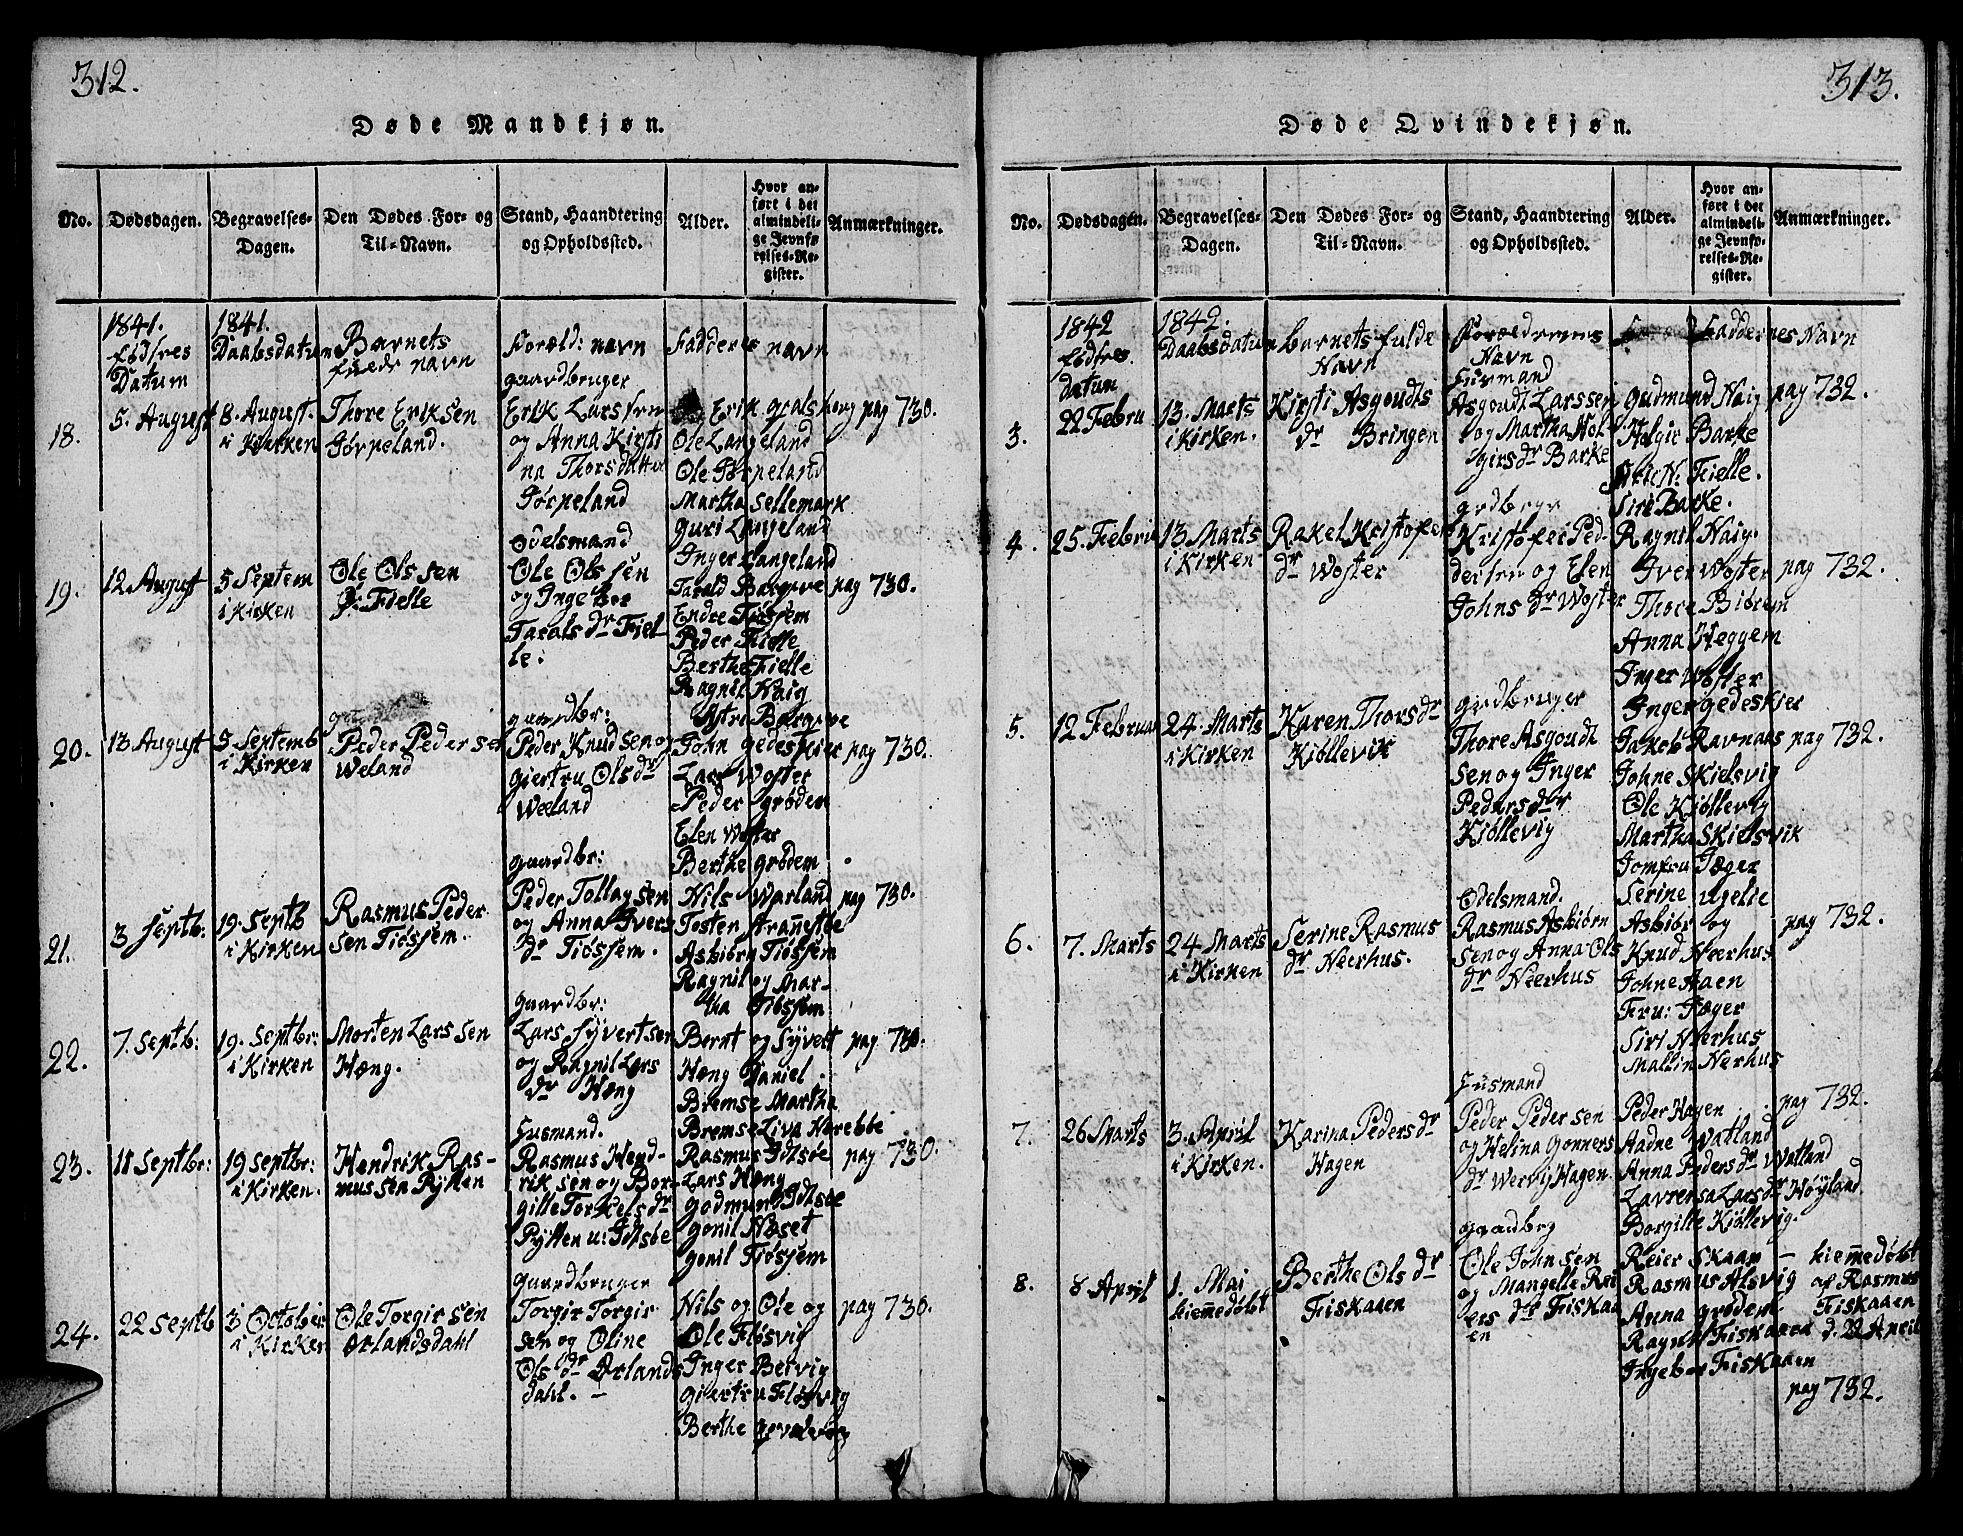 312.
Døde Mandkjøn.
No.
Dødsdagen.
Begravelses-
Dagen.
Den Dødes For- og
Til-Navn.
Stand, Haandtering
og Opholdssted.
Alder.
Hvor an-
ført i det
almindeli-
ge Jevnfø-
relses-Re-
gister.
Anmærkninger.
1841.
fødsres
Datum
1841.
Daabsdatum
Barnets
fulde navn
Foræld: navn
Faddernes navn
18.
5. August
8. August.
i Kirken
Thore Eriksen
Jörpeland.
gaardbruger
Erik Larssen
og Anna Kirsti
na Thorsdatter
Jörpeland
Erik
Ole Langeland
Ole Jörpeland
Martha Sellemark
Guri Langeland
Inger Langeland
pag 730.
19.
12 August
5 Septem
i Kirken
Ole Olssen
Fielle
Odelsmand
Ole Olssen
og Ingebor
Tarals dr Fiel-
le.
Tarald Bergeve
Endre Tiössem
Peder Fielle
Berthe Fielle
Ragnil Naig
Astri Bergeve
pag 730.
20.
13 August
5 Septemb
i Kirken
Peder Pedersen
Weland
gaardbr:
Peder Knudsen og
giertru Ols dr
Weland
John gedeskier
Lars Woster
Peder grödem
Elen Woster
Berthe grödem
pag 730.
21.
3 Septb:
19. Septb
i Kirken
Rasmus Peder
sen Tiössem.
gaardbr:
Peder Tollagsen
og Anna Ivers
dr Tiössem.
Nils Warland
Tosten
Asbiörg Tiössem
Ragnil og Mar-
tha Tiössem
pag 730.
22.
7. Septb:
19. Septbr:
i Kirken
Morten Larssen
Hæng.
gaardbr:
Lars Syvertsen
og Ragnil Lars
dr Hæng
Bernt og Syvert
Hæng Daniel
Bremse Martha
Bremse Liva Norebbe
pag 730.
23.
11 Septbr:
19 Septbr:
i Kirken.
Hendrik Ras-
mussen Pytten
Husmand.
Rasmus Hend-
riksen og Bor-
gille Torkels dr
Pytten u: Idtsöe
Rasmus Idtsöe
Lars Hæng
Godmund Idtsöe
Gonil Næset
Gonil Tiössem
pag 730.
24.
22 Septb
3 October
i Kirken
Ole Torgirsen
Örlandsdahl
gaardbruger
Torgir Torgir
sen og Oline
Ols dr Örlands
dahl. –
Nils og Ole og
Ole Flösvig
Inger Bervig
Giertru Flösvig
Berthe
pag 730.
313.
Døde Qvindekjøn.
No.
Dødsdagen.
Begravelses-
Dagen.
Den Dødes For- og
Til-Navn.
Stand, Haandtering
og Opholdssted.
Alder.
Hvor an-
ført i det
almindeli-
ge Jevnfø-
relses-Re-
gister.
Anmærkninger.
1842
fødsres.
datum
1842.
Daabsdatum
barnets fulde
Navn
Forældrenes
Navn
Faddernes Navn
3.
22 Febru
13. Marts
i Kirken.
Kirsti Asgoudts
dr Bringen
Husmand
Asgoudt Larssen
og Martha Hol-
girs dr Barke
Gudmund Naig
Holgir Barke
N: Fielle.
Siri Barke.
Ragnil Naig.
pag 732.
4.
25. Februa
13 Marts
i Kirken
Rakel Kristofer
dr Woster
grdbrgr
Kristofer Ped-
dersen og Elen
Johns dr Woster
Iver Woster
Thore Biörem
Anna Heggem
Inger Woster
Inger gedeskier
pag 732.
5.
12 Februar
24. Marts
i Kirken
Karen Thors dr
Kiöllevik
Gardbruger
Thore Asgoudt
sen og Inger
Peders dr
Kiöllevig
Jakob Ravnaas
Johne Skielsvig
Ole Kiöllevig
Martha Skielsvik
Jomfru Jæger
Serine ugelie
pag 732.
6.
7. Marts
24 Marts
i Kirken
Serine Rasmus
dr Neerhus.
Odelsmand.
Rasmus Asbiörn
sen og Anna Ols
dr Neerhus
Asbiör og
Knud Neerhus
Johne Aaen
Fru: Jæger
Siri Nerhus
Mallin Nerhus
pag 732.
7.
26 Marts
3. April
i Kirken.
Karina Peders dr
Hagen
Husmand
Peder Pedersen
og Helina Gonners
dr Wervij Hagen
Peder Hagen
Aadne Watland
Anna Peders dr Watland
Lavrensa Lars dr Høyland
Borgilte Kiöllevig.
pag 732.
8.
8 April
1. Mai
hiemedøbt
Berthe Ols dr
Fiskaaen
gaardbrg
Ole Johnsen
og Mangelle Rei
ers dr Fiskaa
en
Reier Skaar –
Rasmus Alsvig
Anna grødem
Ragnil Fiskaaen
Ingebor Fiskaaen
hiemedøbt
af Rasmus
Fiskaaen
d. 22 April
pag 732.